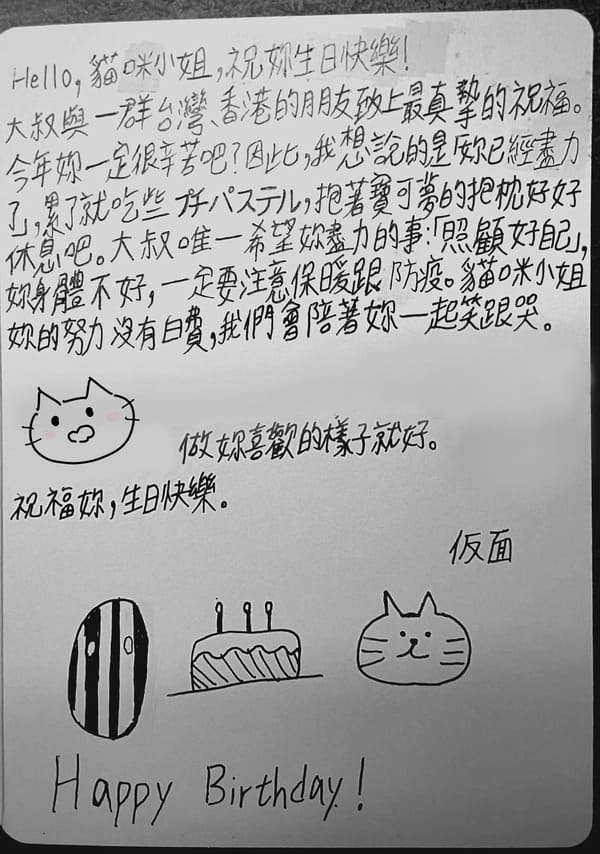 Hello, 貓咪小姐,祝妳生日快樂!
大叔與一群台灣、香港的朋友致上最真摯的祝福。
今年妳一定很辛苦吧?因此,我想說的是「妳已經盡力
了」,累了就吃些プチパステル,抱著寶可夢的抱枕好好
休息吧。大叔唯一希望妳盡力的事:「照顧好自己」,
妳身體不好,一定要注意保暖跟防疫。貓咪小姐
妳的努力沒有白費,我們會陪著妳一起笑跟哭。
做妳喜歡的樣子就好。
祝福妳,生日快樂。
仮面
Happy Birthday!